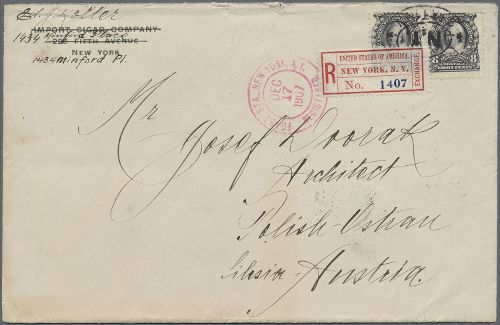 IMPORT CIGAR COMPANY
1434 Minford Place
226 FIFTH AVENUE
NEW YORK
1434 Minford Pl.
NEW YORK, N.Y.
DEC
17
1907
REGISTERED
R
UNITED STATES OF AMERICA.
NEW YORK, N. Y.
No. 1407
EXCHANGE
8
Mr
Josef Dvorak
Architect
Polish-Ostrau
Silesia - Austria.